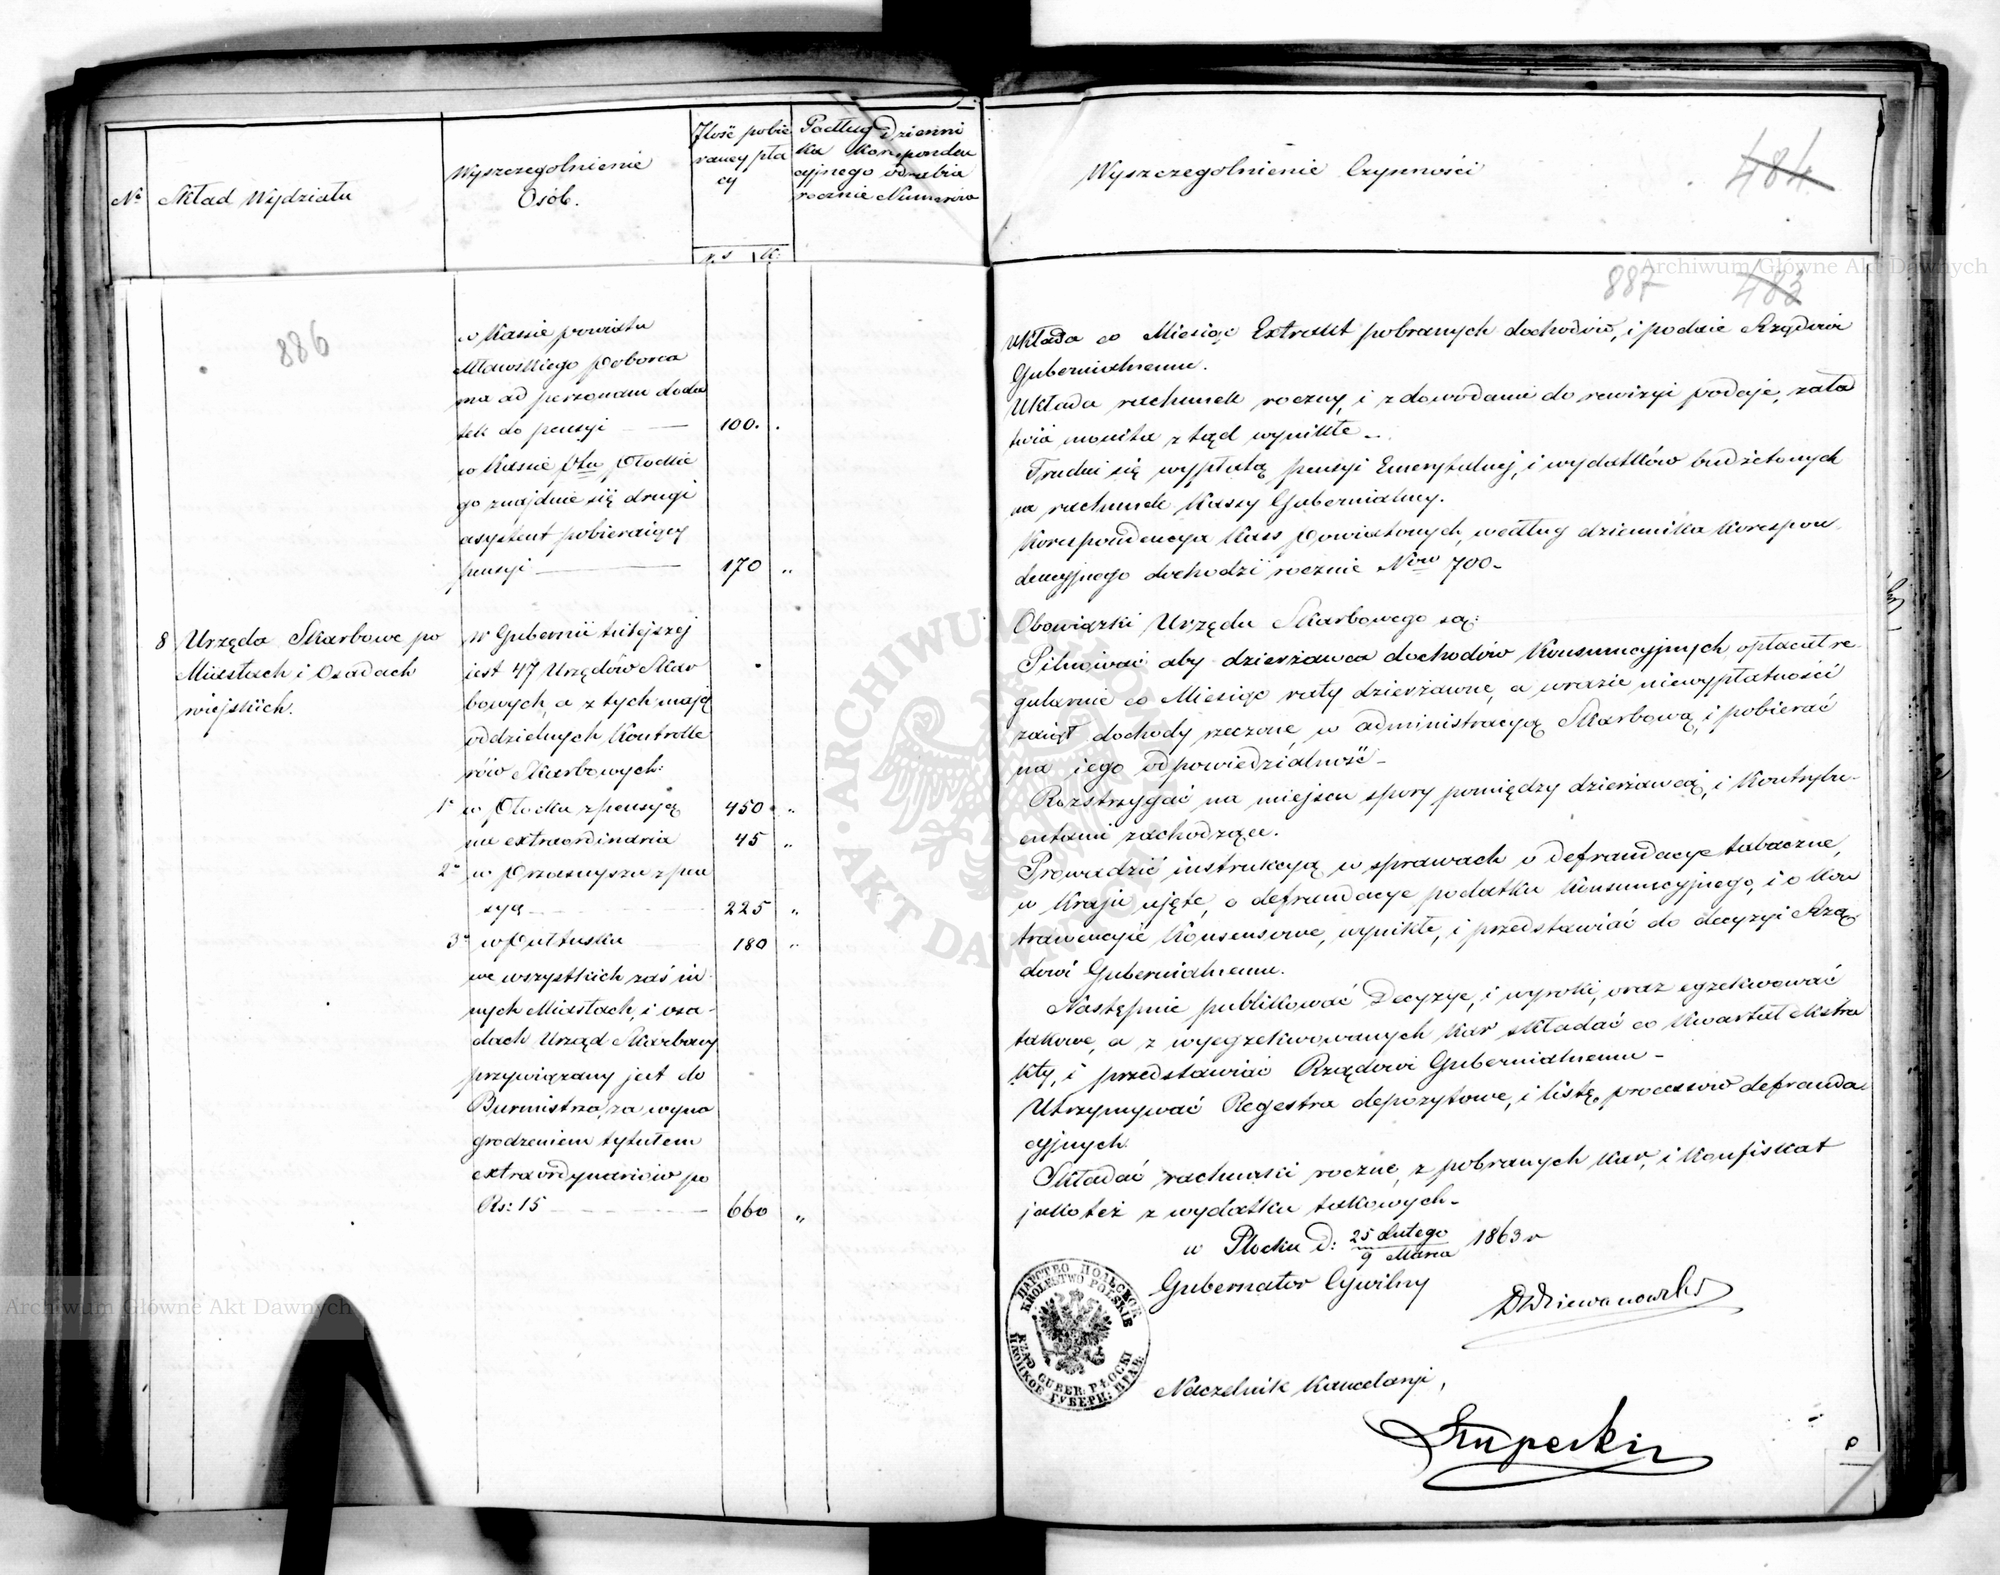 №
Skład Wydziału
Wyszczegolnienie
Osób.
Ilość pobie
raney pła
cy
R. S. K.
Podług dzienni
ka Korrespondeu
cyjnego odrabia
rocznie Numerow
Wyszczegolnienie Czynności
484
886
w Kassie powiatu
Mławskiego Poborca
ma ad personam doda
tek do pensyi — 100.
w Kassie Ptu Płockie
go znajduie się drugi
asystent pobieraiący
pensyi — 170 „
8 Urzęda Skarbowe po
Miastach i Osadach
wiejskich.
w Gubernii tutejszej
iest 47 Urzędów Skar
bowych, a z tych mają
oddzielnych Kontrolle
rów Skarbowych:
1° w Płocku z pensyą 450 „
na extraordinaria 45 „
2° w Przasnyszu z pen
syą — 225 „
3° w Pułtusku — 180 „
we wszystkich zaś in
nych Miastach, i osa-
dach Urząd Skarbowy
przywiązany jest do
Burmistrza, za wyna
grodzeniem tytułem
extraordynariów po
Rs: 15 — 660 „
887 483
Układa co Miesiąc Extrakt pobranych dochodów, i podaie Rządowi
Gubernialnemu.
Układa rachunek roczny, i z dowodami do rewizyi podaje, zała
twia monita z tąd wynikłe —
Trudni się wypłatą pensyi Emerytalnej, i wydatków budżetowych
na rachunek Kassy Gubernialney.
Korespondencya Kass Powiatowych, według dziennika Korespon
dencyjnego dochodzi rocznie Nrów 700 —
Obowiązki Urzędu Skarbowego są:
Pilnować aby dzierżawca dochodów Konsumcyjnych opłacał re-
gularnie co Miesiąc raty dzierżawne, a w razie niewypłatności
zaiąć dochody rzeczone, w administracyą Skarbową, i pobierać
na iego odpowiedzialność —
Rozstrzygać na miejscu spory pomiędzy dzierżawcą, i Kontrybu-
entami zachodzące.
Prowadzić instrukcyą w sprawach o defraudacye tabaczne,
w Kraju ujęte, o defraudacye podatku Konsumcyjnego, i o Kon
trawencyie Konsensowe, wynikłe, i przedstawiać do decyzyi Rzą
dowi Gubernialnemu.
Następnie publikować Decyzye, i wyroki, oraz egzekwować
takowe, a z wyegzekwowanych Kar składać co Kwartał ekstra
kty, i przedstawiać Rządowi Gubernialnemu —
Utrzymywać Regestra depozytowe, i listę processów defrauda
cyjnych.
Składać rachunki roczne, z pobranych kar, i Konfiskat
jako też z wydatku takowych —
w Płocku d: 25 Lutego / 9 Marca 1863 r
Gubernator Cywilny
Naczelnik Kancelaryi,
ЦАРСТВО ПОЛЬСКОЕ
KRÓLESTWO POLSKIE
RZĄD GUBER: PŁOCKI
ПЛОЦКОЕ ГУБЕРН: ПРАВ:
ARCHIWUM GŁÓWNE AKT DAWNYCH
Archiwum Główne Akt Dawnych
Archiwum Główne Akt Dawnych